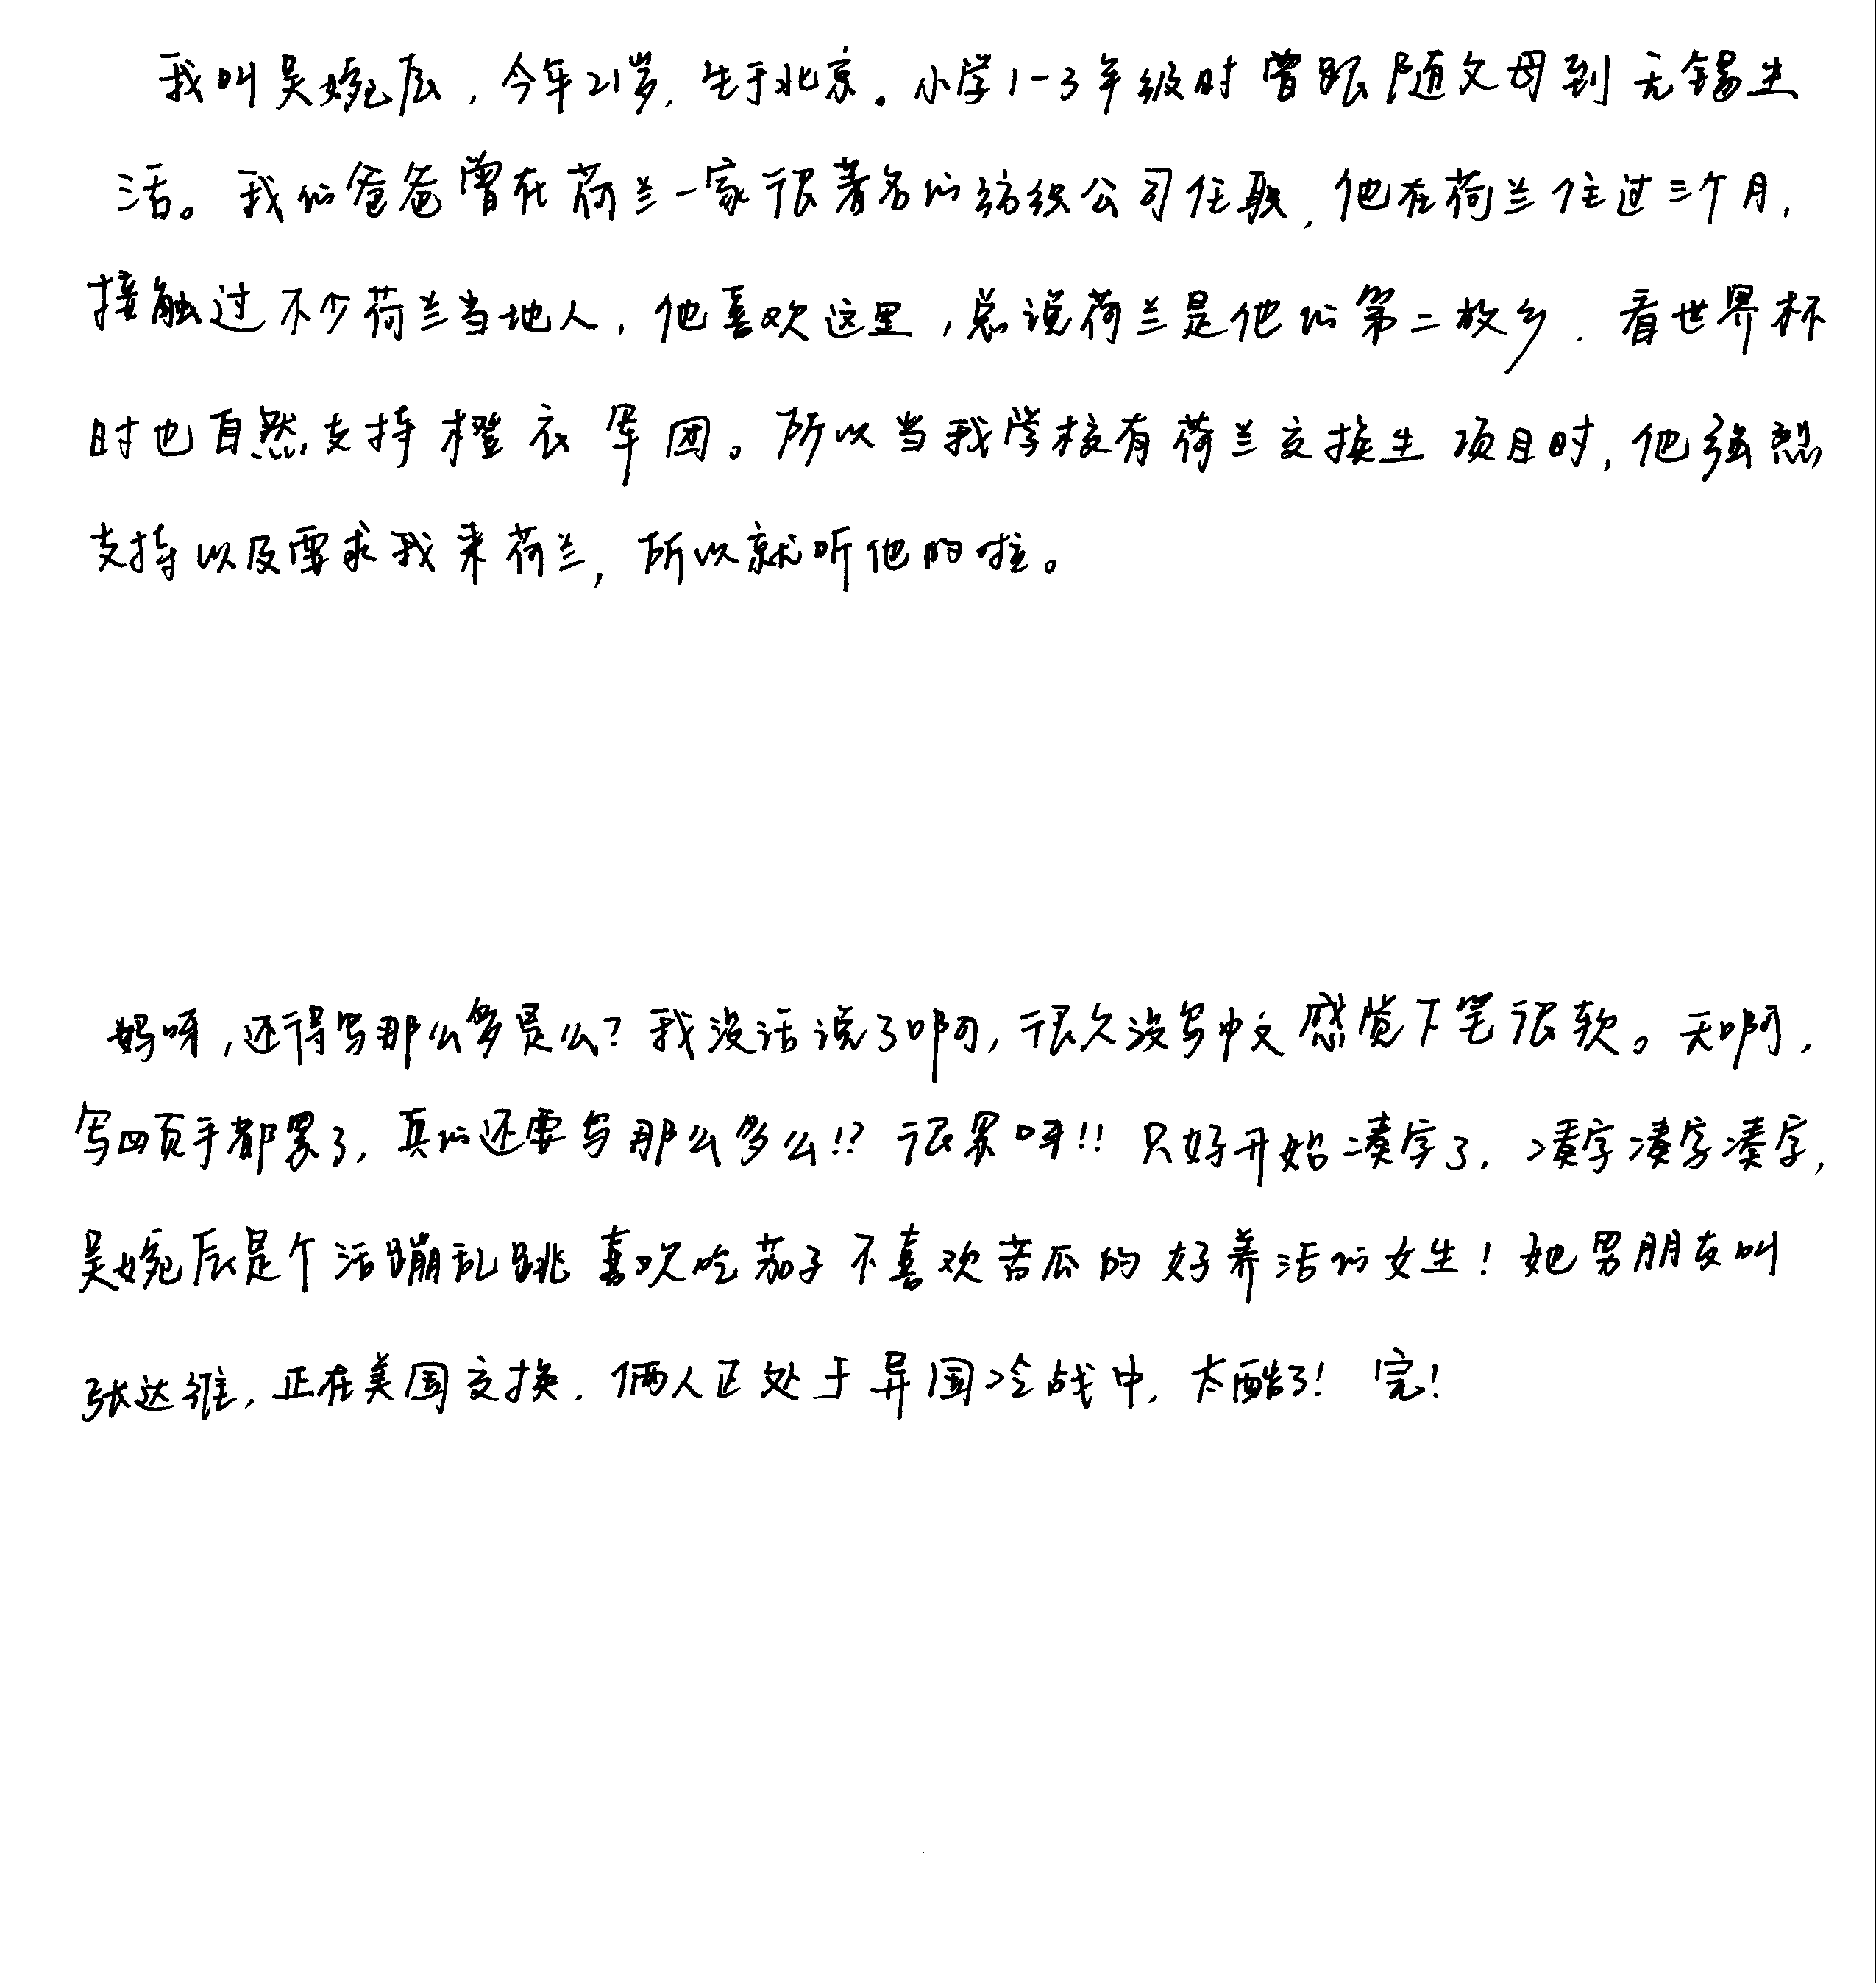 我叫吴婉辰，今年21岁，生于北京。小学1-3年级时曾跟随父母到无锡生
活。我的爸爸曾在荷兰一家很著名的纺织公司任职，他在荷兰住过三个月，
接触过不少荷兰当地人，他喜欢这里，总说荷兰是他的第二故乡．看世界杯
时也自然支持橙衣军团。所以当我学校有荷兰交换生项目时，他强烈
支持以及要求我来荷兰，所以就听他的啦。
妈呀，还得写那么多是么？我没话说了啊，很久没写中文感觉下笔很软。天啊，
写四页手都累了，真的还要写那么多么!？很累呀!! 只好开始凑字了，凑字凑字凑字，
吴婉辰是个活蹦乱跳喜欢吃茄子不喜欢苦瓜的好养活的女生！她男朋友叫
张达維，正在美国交换．俩人正处于异国冷战中，太酷了！完！